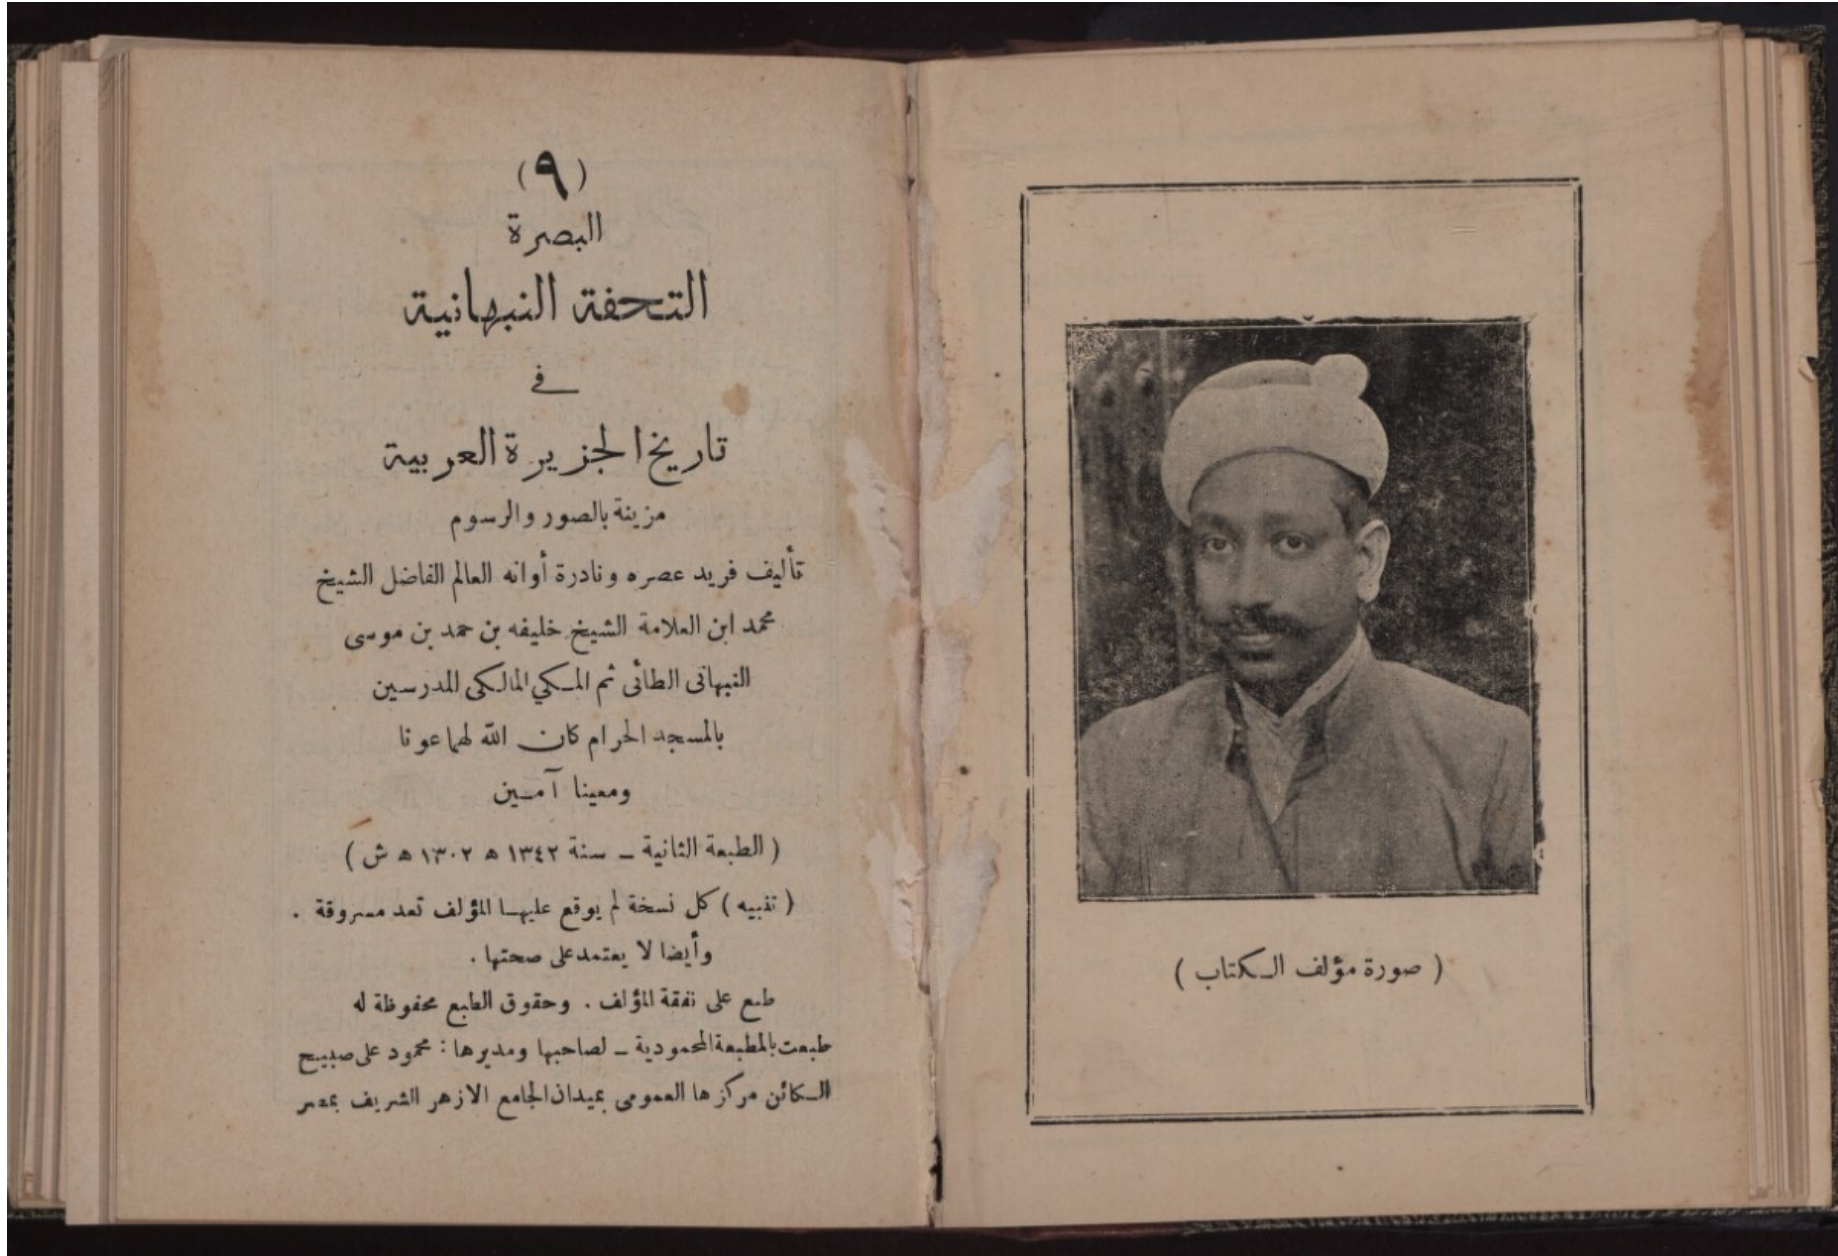 ( صورة مؤلف الكتاب )
(٩)
البصرة
التحفة النبهانية
في
تاريخ الجزيرة العربية
مزينة بالصور والرسوم
تأليف فريد عصره ونادرة أوانه العالم الفاضل الشيخ
محمد ابن العلامة الشيخ خليفه بن حمد بن موسى
النبهانى الطائى ثم المكي المالكى المدرسين
بالمسجد الحرام كان الله لهما عونا
ومعينا آمين
( الطبعة الثانية – سنة ١٣٤٢ ه ١٣٠٢ ه ش )
( تنبيه ) كل نسخة لم يوقع عليها المؤلف تعد مسروقة .
وأيضا لا يعتمد على صحتها .
طبع على نفقة المؤلف . وحقوق الطبع محفوظة له
طبعت بالمطبعة المحمودية – لصاحبها ومديرها : محمود على صبيح
الكائن مركزها العمومى بميدان الجامع الازهر الشريف بمصر